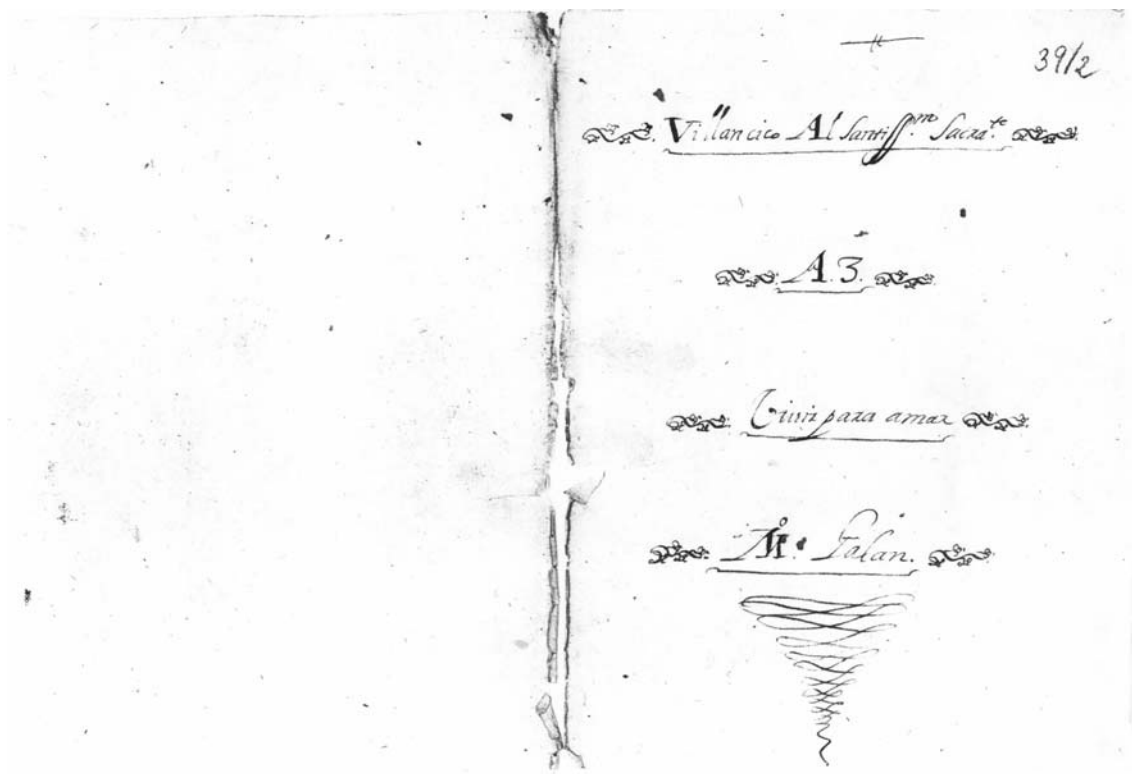 39/2
Villancico Al Santiss.mo Sacra.te
A. 3.
Vivir para amar
M.o Galan.